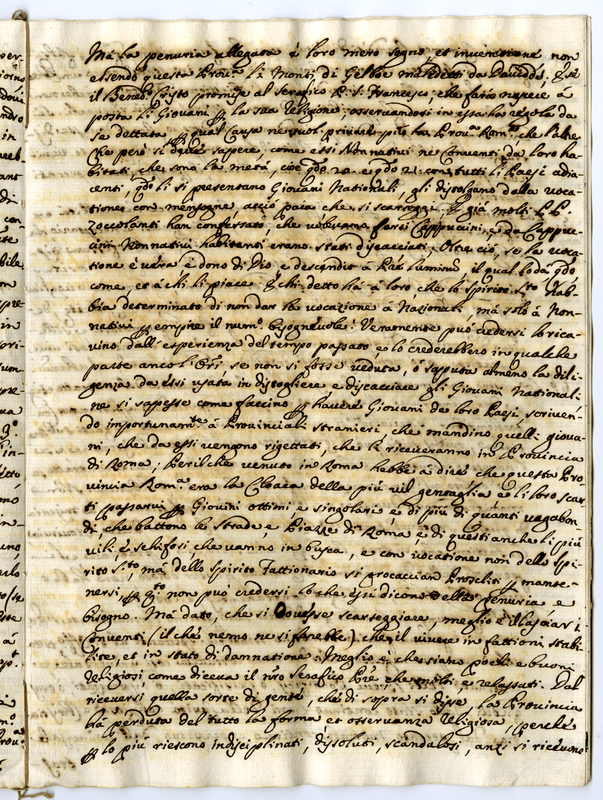 Mà la penuria allegata è loro mero segno, et inventione non
essendo questa Prouª li Monti di Gelboe maledetti da Davidde, e se
il Bened. Cristo promise al Serafico P. S. Francesco, che faria nascere à
posta li Giovani per la sua Religione, osservandosi in essa la regola da
se dettata per qual causa ne vuol privar poi la Prouª Romª che l'altre
Che però si deve sapere, come essi Non nativi ne Conventi da loro ha-
bitati, che sono la metà, cioè 20. e 21. con tutti li Paesi adia-
centi, qdo li si presentano Giovani Nationali, gli distolgano dalla voca-
tione con menzogne acciò paia che si scarseggi, E già molti PP.
Zoccolanti han confessato, che volevano farsi Cappuccini, e da Cappuc-
cini Nonnativi habitanti erano stati discacciati. Oltre ciò, se la voca-
tione è vera, è dono di Dio, e descendit à Pre luminũ, il qual lo dà qdo,
come, et à chi li piace. E chi detto hà à loro, che lo Spirito Sto hab-
bia determinato di non dar la vocazione à Nazionali, mà solo à Non-
nativi per empire il num. bisognevole. Veramente può credersi lo rica-
vino dall'esperienza del tempo passato, e lo crederebbero in qualche
parte anco l'Pri, se non si fosse veduta, ò saputa almeno la dili-
genza da essi usata in distogliere e discacciare gli Giovani Nationali:
ne si sapesse come faccino per havere Giovani de loro Paesi scriven-
do importunamte à Provinciali stranieri, che mandino quelli giova-
ni, che da essi vengono rigettati, che li riceveranno in Provincia
di Roma, Perilche venuto in Roma hebbe à dire che questa Pro-
vincia Romª era la Cloaca della più vil gentaglia, e li loro scar-
ti passarvi per Giovini ottimi, e singolari, e di più di quanti vagabon-
di che battono le strade, e Piazze di Roma, e di questi anche li più
vili, e schifosi che vanno in busca, e con vocatione non dello Spi-
rito Sto, mà dello Spirito Fattionario si procaccian Prosoliti per mante-
nersi, non può credersi lo che essi dicono della penuria e
bisogno. Mà dato, che si dovesse scarseggiare, meglio è il lasciar i
Conventi (il che nemo ne si farebbe) che il vivere in fattioni stabi-
lite, et in stato di damnatione. Meglio è, che siano pochi e buoni
Religiosi come diceva il nro Serafico Pre, che molti, e relassati. Dal
riceversi quella sorte di gente, che di sopra si disse, la Provincia
hà perduta del tutto la forma et osservanza Religiosa, perchè
per lo più riescono indisciplinati, dissoluti, scandalosi, anzi si ricevono